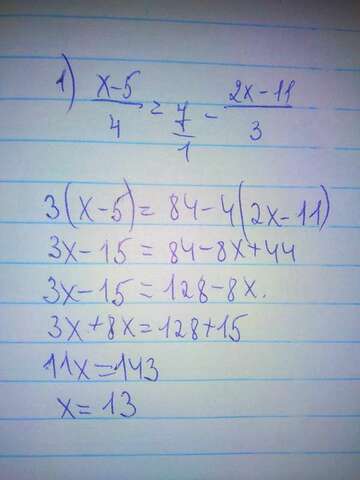 1) x-5/4 = 7/1 - 2x-11/3
3(x-5)=84-4(2x-11)
3x-15=84-8x+44
3x-15=128-8x.
3x+8x=128+15
11x=143
x=13